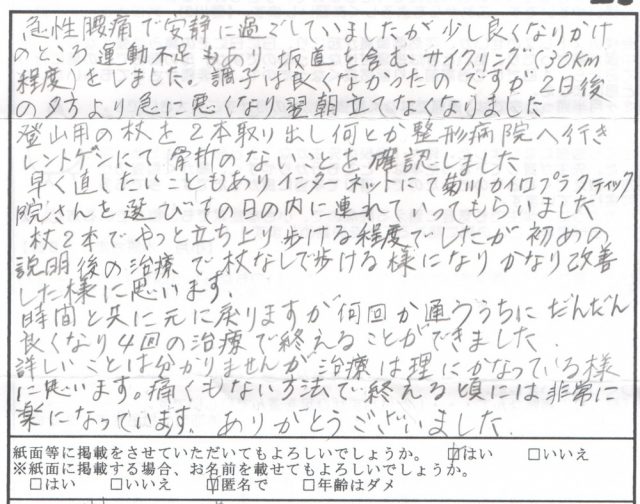 急性腰痛で安静に過ごしていましたが少し良くなりかけ
のところ運動不足もあり坂道を含むサイクリング(30Km
程度)をしました。調子は良くなかったのですが2日後
の夕方より急に悪くなり翌朝立てなくなりました
登山用の杖を2本取り出し何とか整形病院へ行き
レントゲンにて骨折のないことを確認しました
早く直したいこともありインターネットにて菊川カイロプラクティック
院さんを選びその日の内に連れていってもらいました
杖2本でやっと立ち上り歩ける程度でしたが初めの
説明後の治療で杖なしで歩ける様になりかなり改善
した様に思います。
時間と共に元に戻りますが何回か通ううちにだんだん
良くなり4回の治療で終えることができました。
詳しいことは分かりませんが治療は理にかなっている様
に思います。痛くもない方法で終える頃には非常に
楽になっています。ありがとうございました
紙面等に掲載をさせていただいてもよろしいでしょうか。 ☑はい □いいえ
※紙面に掲載する場合、お名前を載せてもよろしいでしょうか。
□はい □いいえ ☑匿名で □年齢はダメ